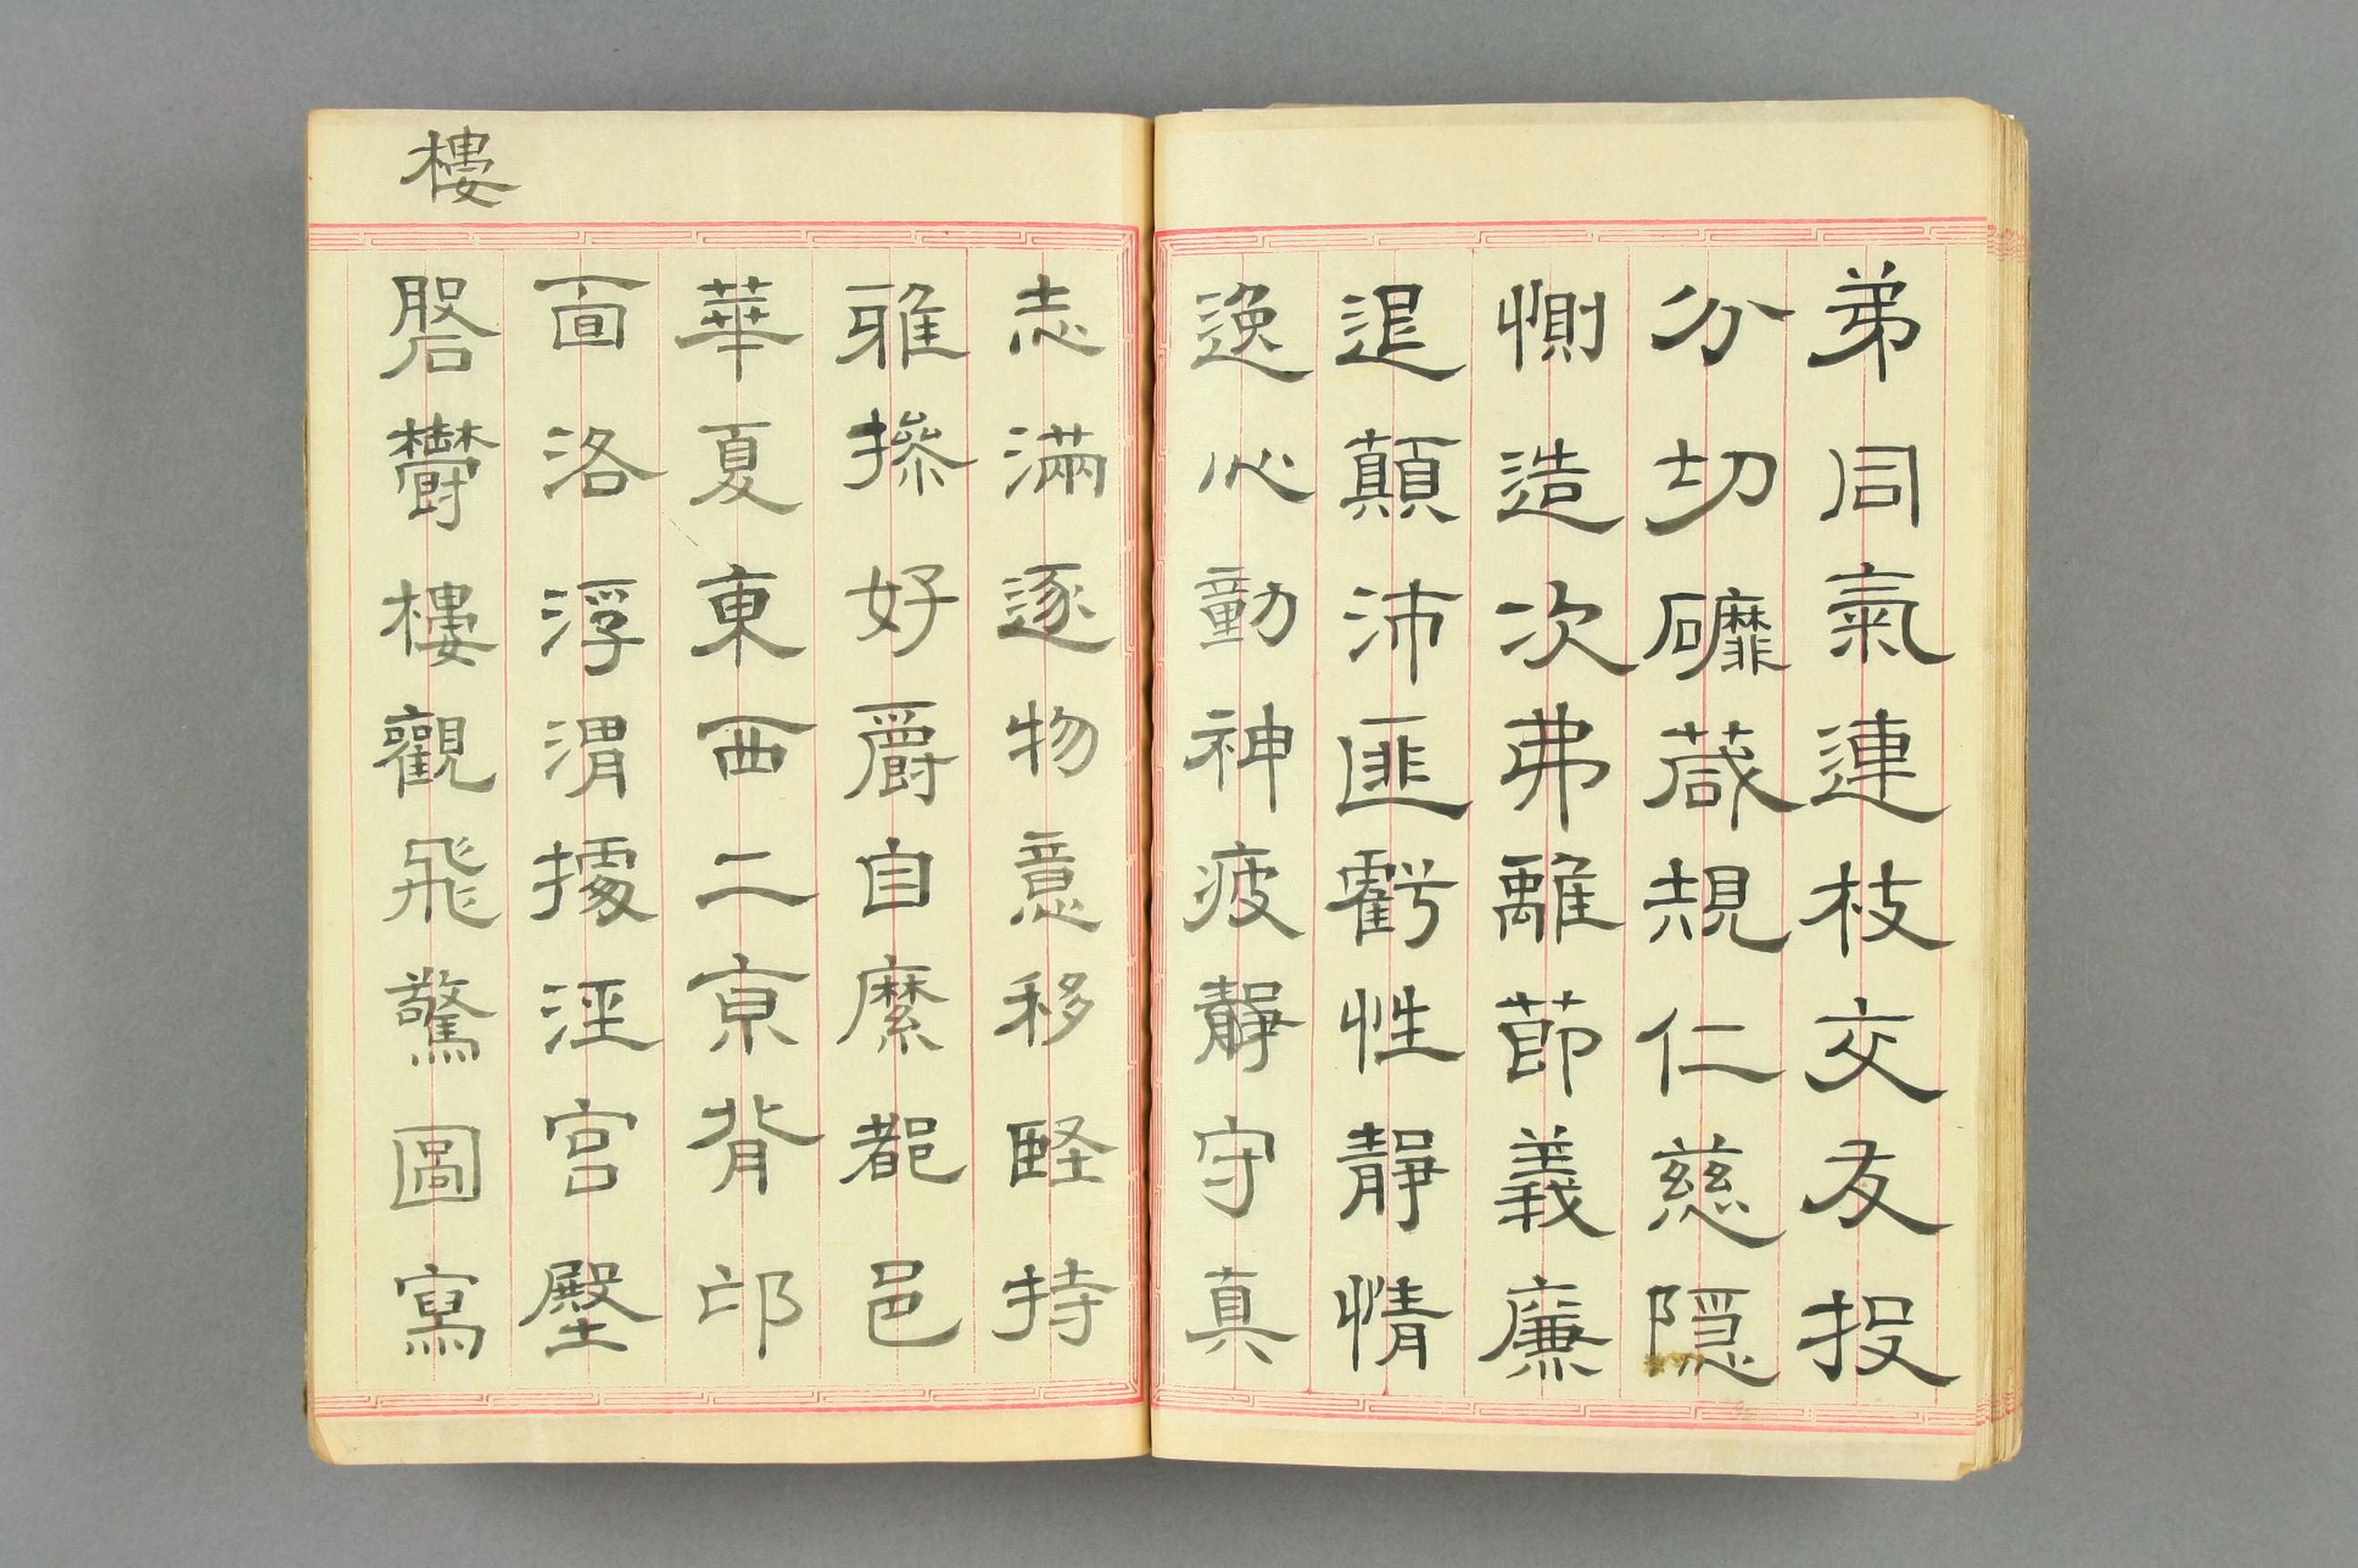 弟同氣連枝交友投
分切磨葴規仁慈隱
惻造次弗離節義廉
退顛沛匪虧性靜情
逸心動神疲靜守真
志滿逐物意移堅持
雅操好爵自縻都邑
華夏東西二京背邙
面洛浮渭據涇宮殿
樓
盤鬱樓觀飛驚圖寫